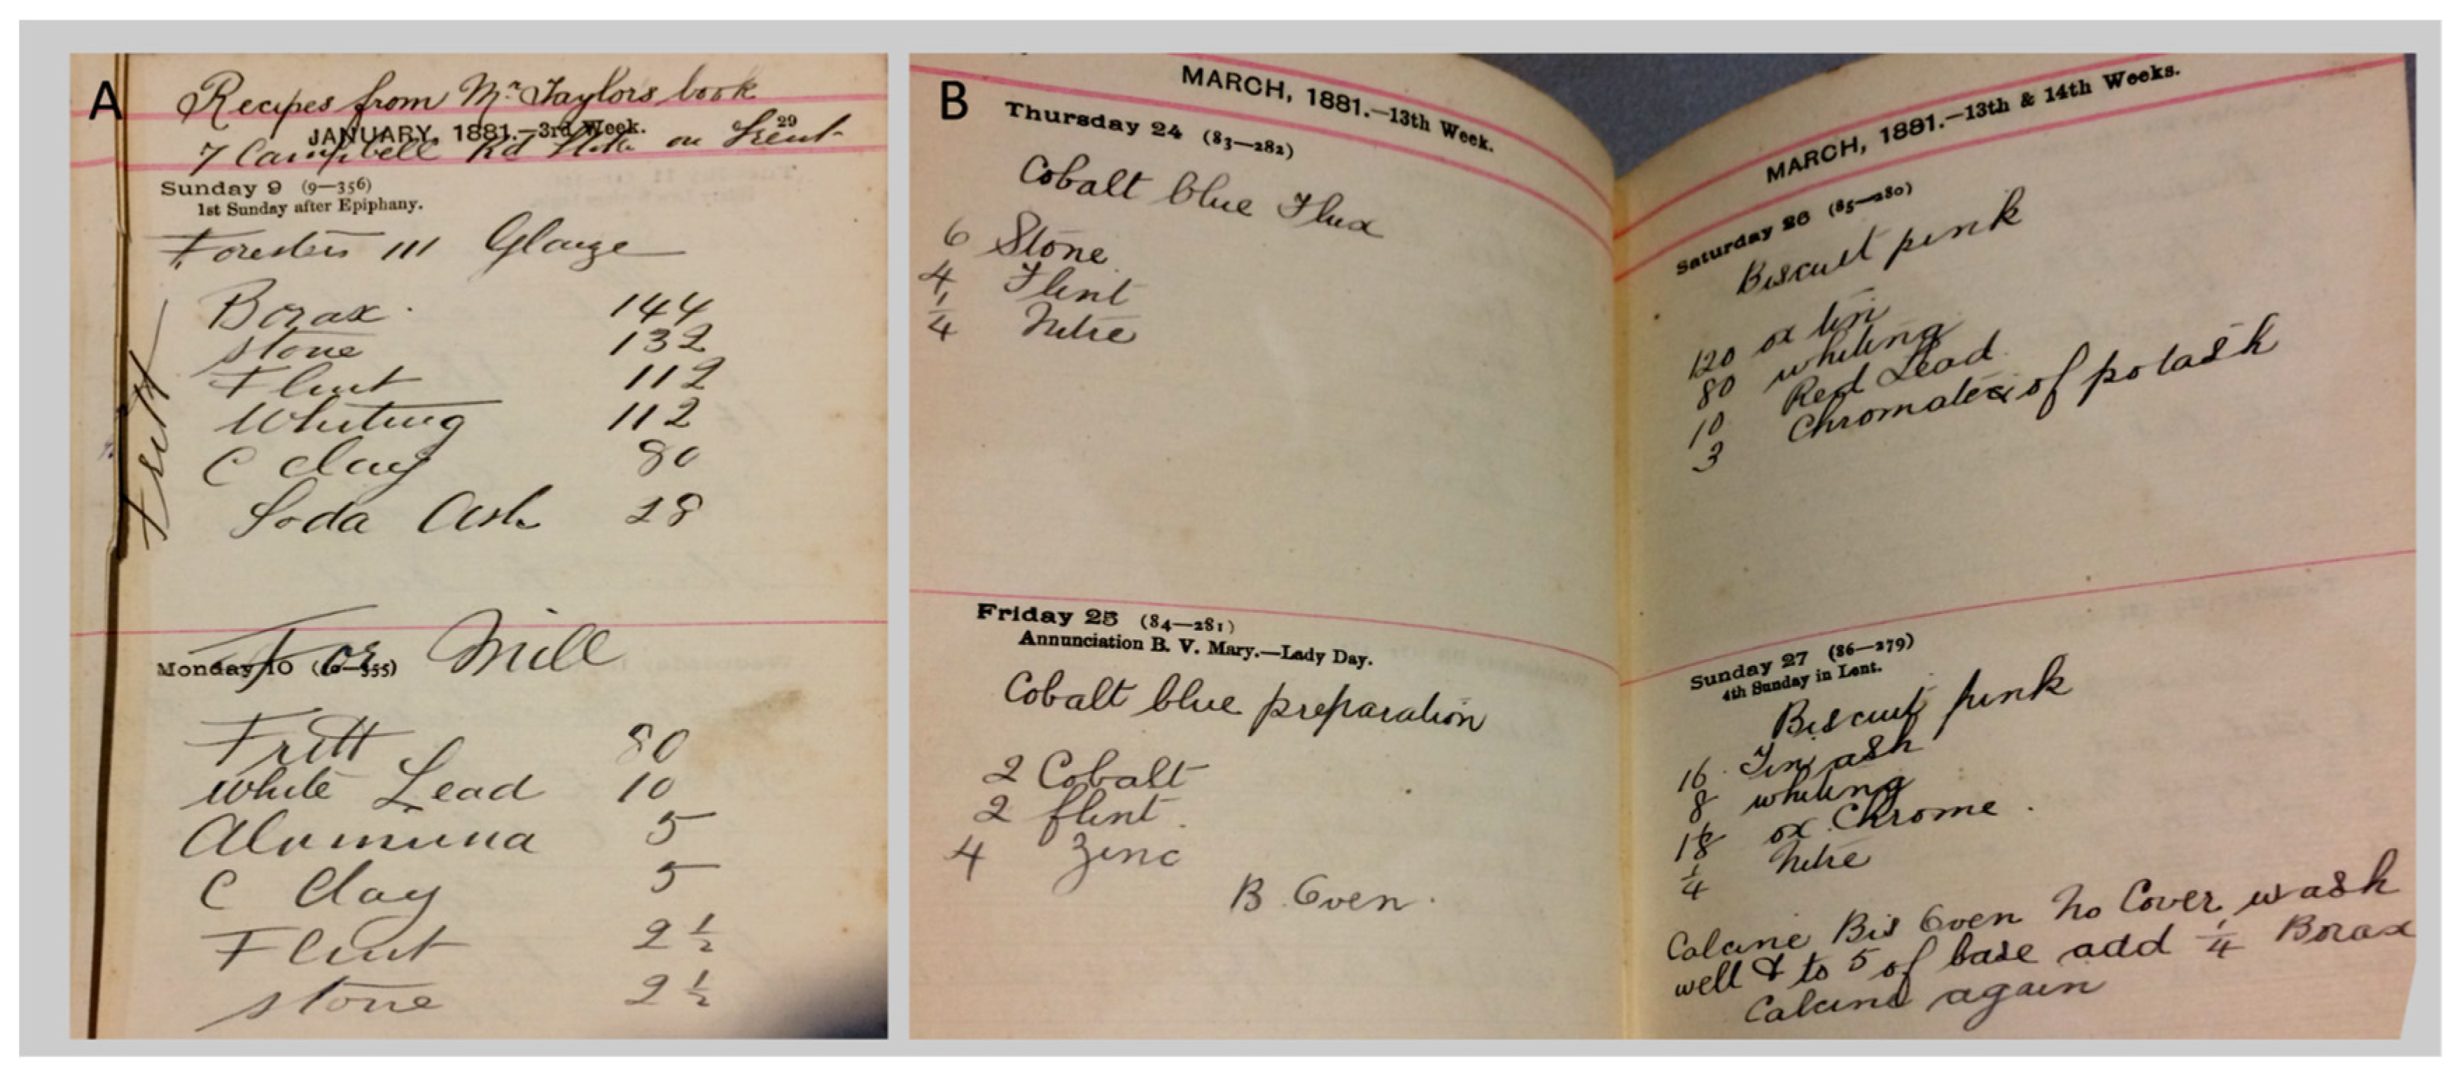 A
Recipes from Mr Taylors book
29
JANUARY, 1881.—3rd Week.
7 Campbell Rd Stoke on Trent
Sunday 9 (9—356)
1st Sunday after Epiphany.
Foresters 111 Glaze
Fritt
Borax 144
stone 132
Flint 112
Whiting 112
C Clay 80
Soda Ash 28
For Mill
Monday 10 (10—355)
Fritt 80
white Lead 10
Alumina 5
C Clay 5
Flint 2 1/2
stone 2 1/2
B
MARCH, 1881.—13th Week.
Thursday 24 (83—282)
Cobalt blue Flux
6 Stone
4 Flint
1/4 Nitre
Friday 25 (84—281)
Annunciation B. V. Mary.—Lady Day.
Cobalt blue preparation
2 Cobalt
2 flint
4 Zinc
B Oven.
MARCH, 1881.—13th & 14th Weeks.
Saturday 26 (85—280)
Biscuit pink
120 ox tin
80 whiting
10 Red Lead
3 Chromate of potash
Sunday 27 (86—279)
4th Sunday in Lent.
Biscuit pink
16 Tin ash
8 whiting
ox Chrome
1/4 Nitre
Calcine Bis Oven No Cover wash
well & to 5 of base add 1/4 Borax
Calcine again